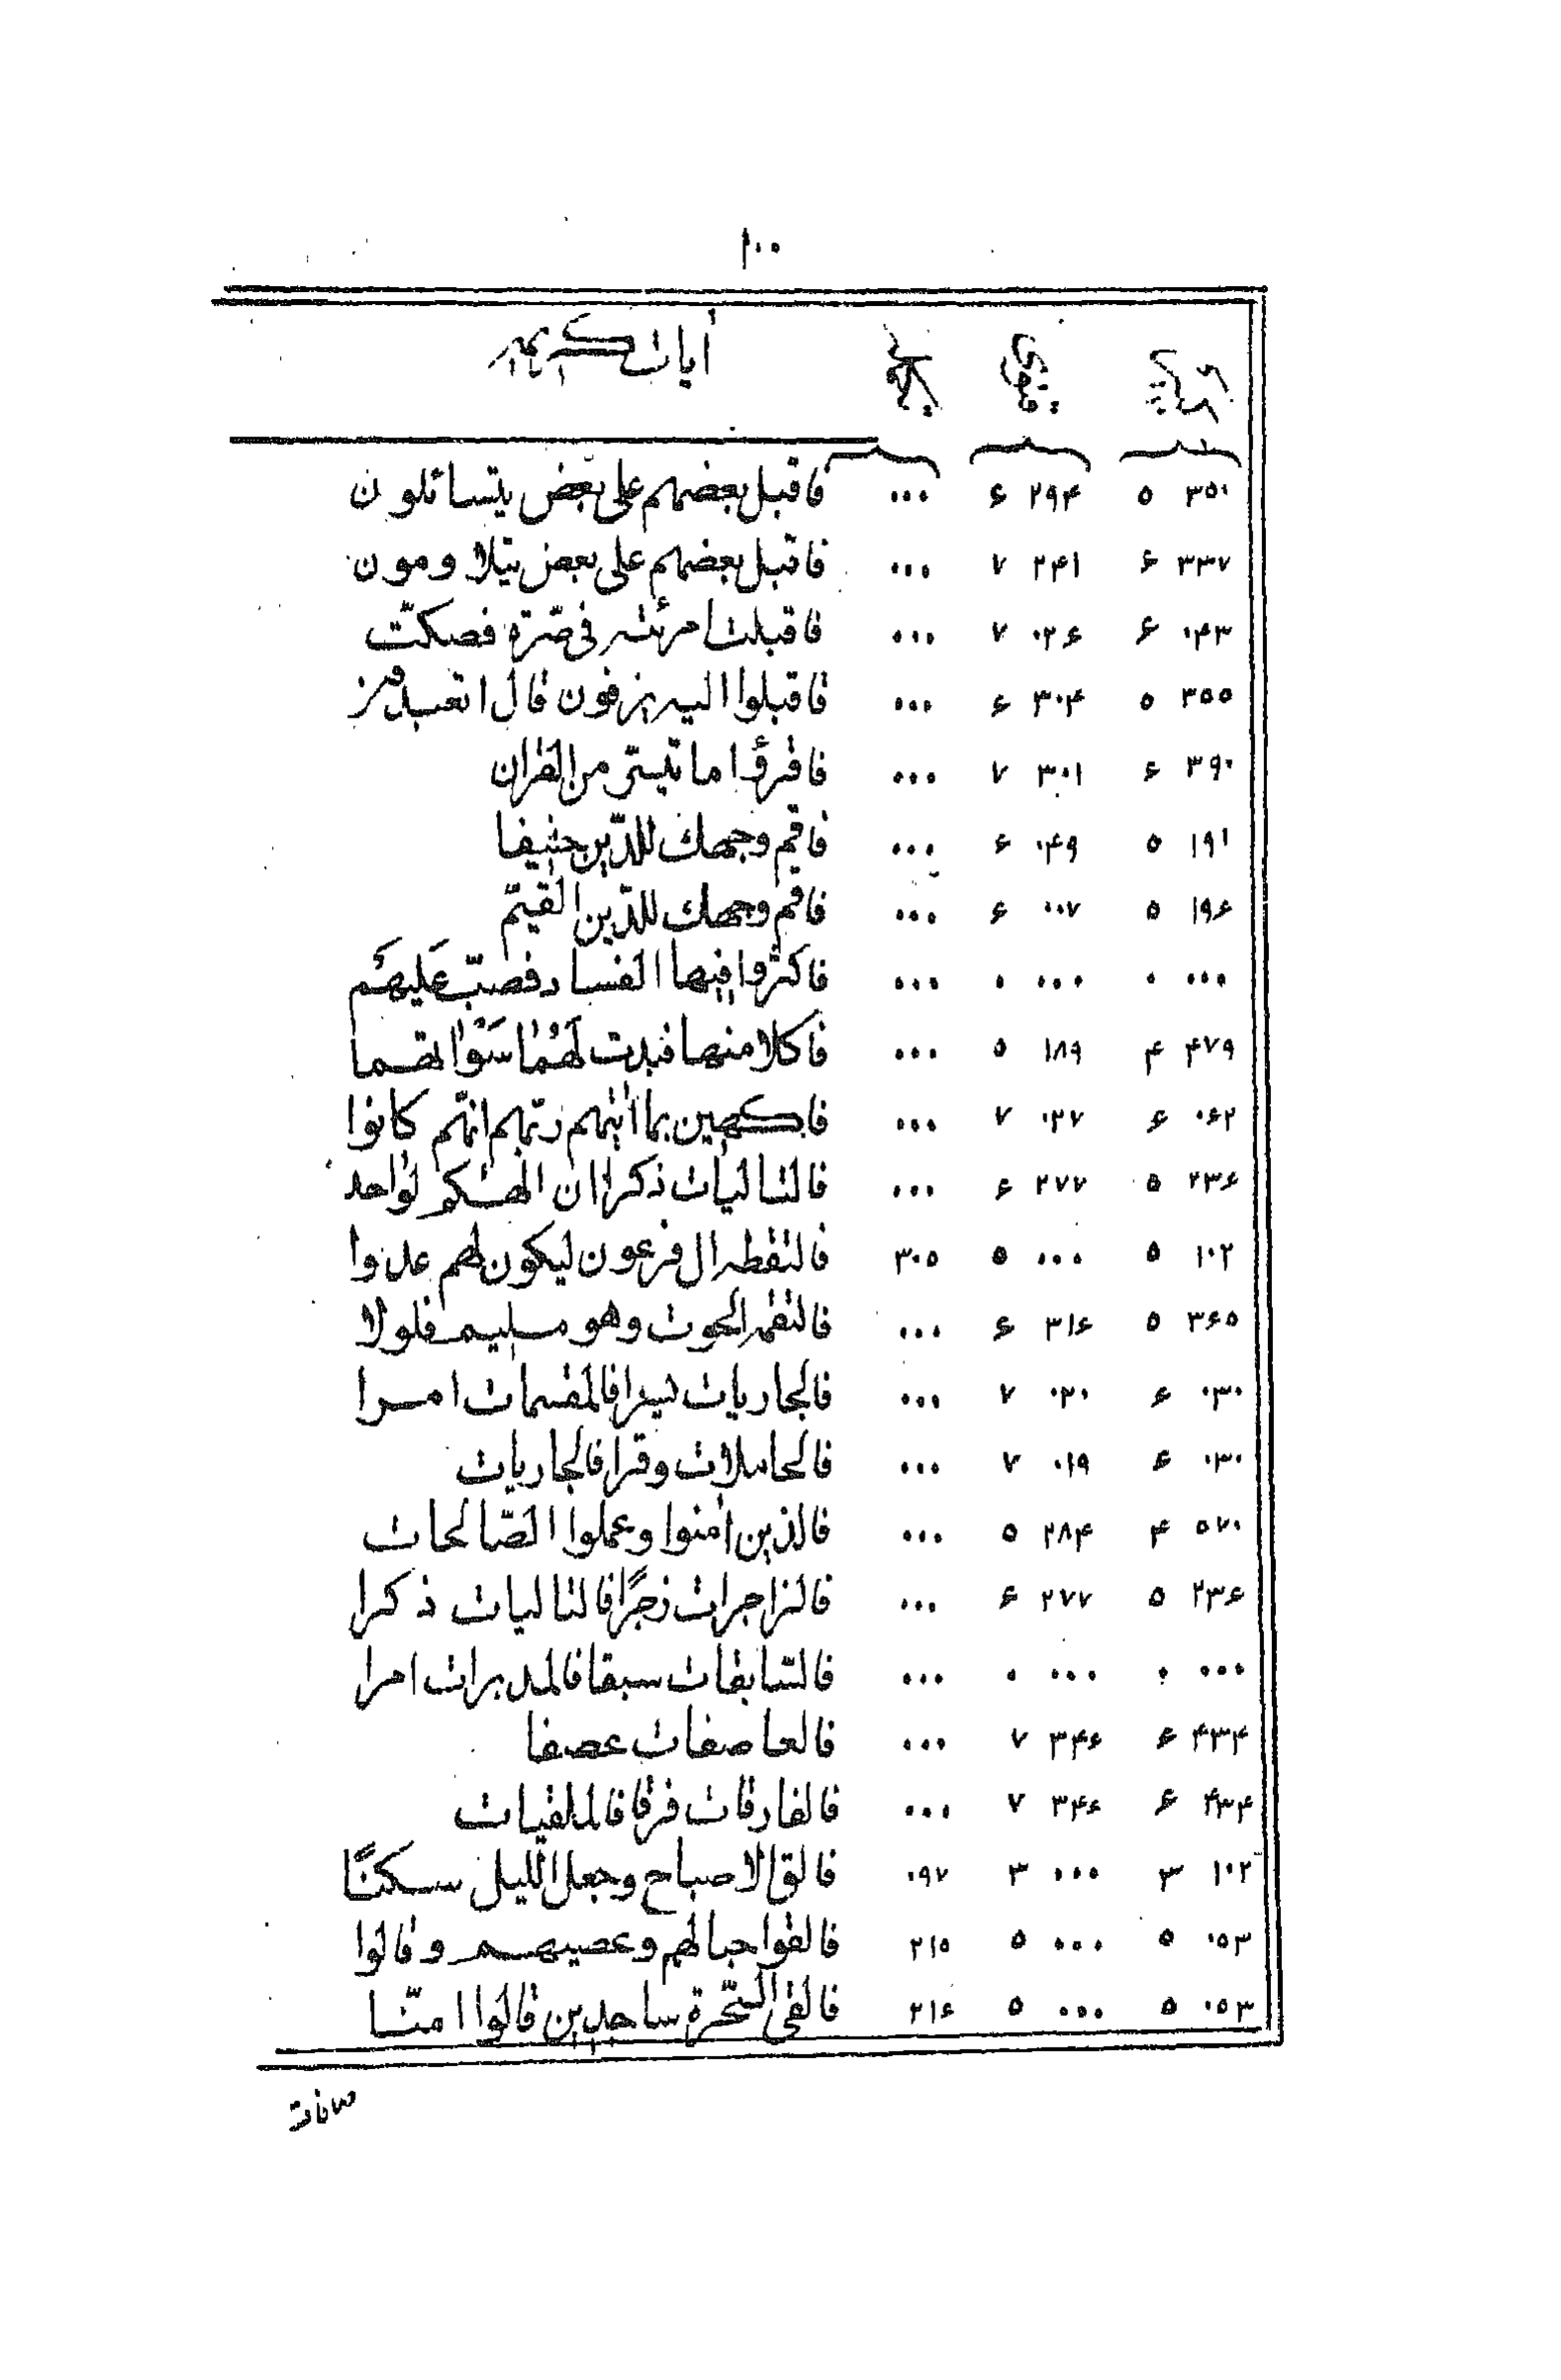 ١٠٠
آيات كريمه
٣٥٠ ٥ ٢٩۴ ۶ ٠٠٠ فاقبل بعضهم على بعض يتسائلون
٣٣٧ ۶ ٢۴١ ٧ ٠٠٠ فاقبل بعضهم على بعض يتلاومون
٠۴٣ ۶ ٠٢۶ ٧ ٠٠٠ فاقبلت امرئته فى صرّة فصكّت
٣٥٥ ٥ ٣٠۴ ۶ ٠٠٠ فاقبلوا اليه يزفون قال اتعبدون
٣٩٠ ۶ ٣٠١ ٧ ٠٠٠ فاقرؤا ما تيسّر من القران
١٩١ ٥ ٠۴٩ ۶ ٠٠٠ فاقم وجهك للدّين حنيفا
١٩۶ ٥ ٠٠٧ ۶ ٠٠٠ فاقم وجهك للدّين القيّم
٠٠٠ ٠ ٠٠٠ ٠ ٠٠٠ فاكثروا فيها الفساد فصبّ عَليهَم
۴٧٩ ۴ ١٨٩ ٥ ٠٠٠ فاكلا منها فبدت لَهُمٰا سَوْاتهما
٠۶٢ ۶ ٠٣٧ ٧ ٠٠٠ فاكهين بما اتٰيهم ربّهم انهّم كانوا
٢٣۶ ٥ ٢٧٧ ۶ ٠٠٠ فالتاليات ذكرا ان الهكم لواحد
١٠٢ ٥ ٠٠٠ ٥ ٣٠٥ فالتقطه ال فرعون ليكون لهم عدوا
٣۶٥ ٥ ٣١۶ ۶ ٠٠٠ فالتقمه الحوت وهو مليم فلولا
٠٣٠ ۶ ٠٢٠ ٧ ٠٠٠ فالجاريات يسرا فالمقسمات امرا
٠٣٠ ۶ ٠١٩ ٧ ٠٠٠ فالحاملات وقرا فالجاريات
٥٧٠ ۴ ٢٨۴ ٥ ٠٠٠ فالذين امنوا وعملوا الصّالحات
٢٣۶ ٥ ٢٧٧ ۶ ٠٠٠ فالزاجرات زجرًا فالتاليات ذكرا
٠٠٠ ٠ ٠٠٠ ٠ ٠٠٠ فالسّابقات سبقا فالمدبرات امرا
۴٣۴ ۶ ٣۴۶ ٧ ٠٠٠ فالعاصفات عصفا
۴٣۴ ۶ ٣۴۶ ٧ ٠٠٠ فالفارقات فرقا فالملقيات
١٠٢ ٣ ٠٠٠ ٣ ٠٩٧ فالق الاصباح وجعل الليل سكنًا
٠٥٣ ٥ ٠٠٠ ٥ ٢١٥ فالقوا حبالهم وعصيهم وقالوا
٠٥٣ ٥ ٠٠٠ ٥ ٢١۶ فالقى السّحرة ساجدين قالوا امنّا